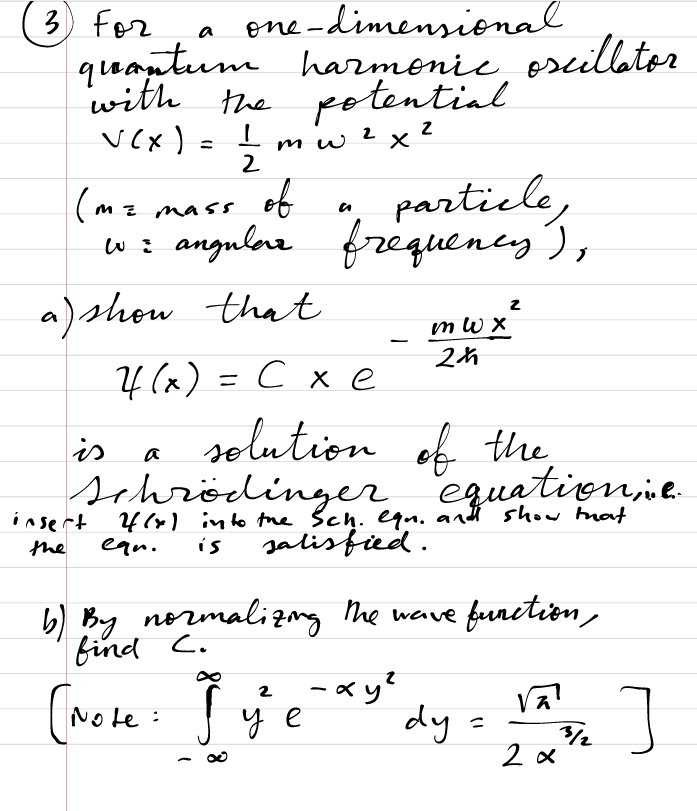 (3) For a one-dimensional
quantum harmonic oscillator
with the potential
V(x) = 1/2 m w² x²
(m ≡ mass of a particle,
w ≡ angular frequency),
a) show that
ψ(x) = C x e^(- mwx²/2ħ)
is a solution of the
Schrödinger equation, i.e.
insert ψ(x) into the Sch. eqn. and show that
the eqn. is satisfied.
b) By normalizing the wave function,
find C.
[Note: ∫_{-∞}^{∞} y² e^(-αy²) dy = √π / 2α^(3/2)]